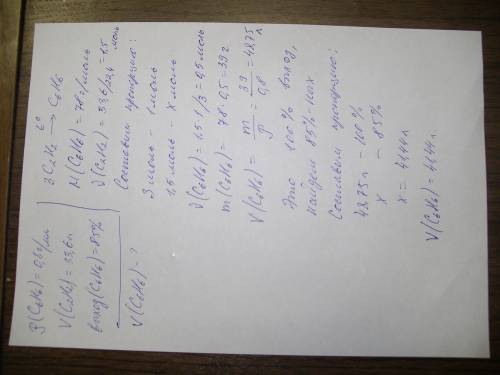 ρ(C₆H₆) = 0,8 г/мл
V(C₂H₂) = 33,6 л
выход (C₆H₆) = 85%
V(C₆H₆) - ?
3C₂H₂ t° → C₆H₆
M(C₆H₆) = 78 г/моль
ν(C₂H₂) = 33,6/22,4 = 1,5 моль
Составим пропорцию:
3 моль – 1 моль
1,5 моль – x моль
ν(C₆H₆) = 1,5·1/3 = 0,5 моль
m(C₆H₆) = 78·0,5 = 39 г
V(C₆H₆) = m/ρ = 39/0,8 = 48,75 л
Это 100% выход,
найдем 85%-ных
Составим пропорцию:
48,75 л – 100%
x – 85%
x = 41,44 л
V(C₆H₆) = 41,44 л